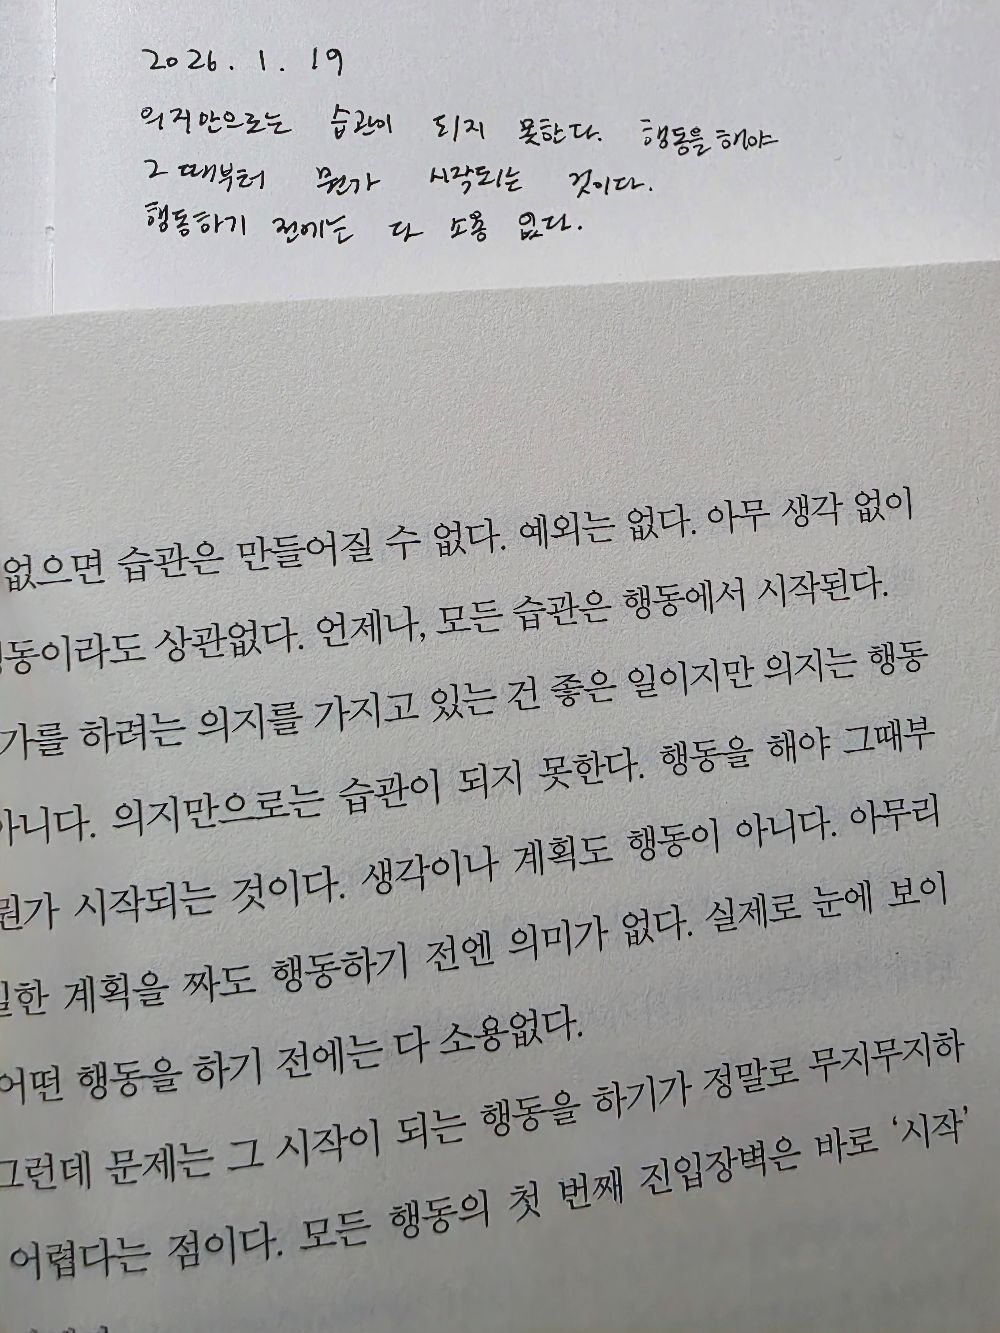 2026. 1. 19
의지만으로는 습관이 되지 못한다. 행동을 해야
그때부터 뭔가 시작되는 것이다.
행동하기 전에는 다 소용 없다.
없으면 습관은 만들어질 수 없다. 예외는 없다. 아무 생각 없이
동이라도 상관없다. 언제나, 모든 습관은 행동에서 시작된다.
가를 하려는 의지를 가지고 있는 건 좋은 일이지만 의지는 행동
아니다. 의지만으로는 습관이 되지 못한다. 행동을 해야 그때부
뭔가 시작되는 것이다. 생각이나 계획도 행동이 아니다. 아무리
밀한 계획을 짜도 행동하기 전엔 의미가 없다. 실제로 눈에 보이
어떤 행동을 하기 전에는 다 소용없다.
그런데 문제는 그 시작이 되는 행동을 하기가 정말로 무지무지하
어렵다는 점이다. 모든 행동의 첫 번째 진입장벽은 바로 ‘시작’